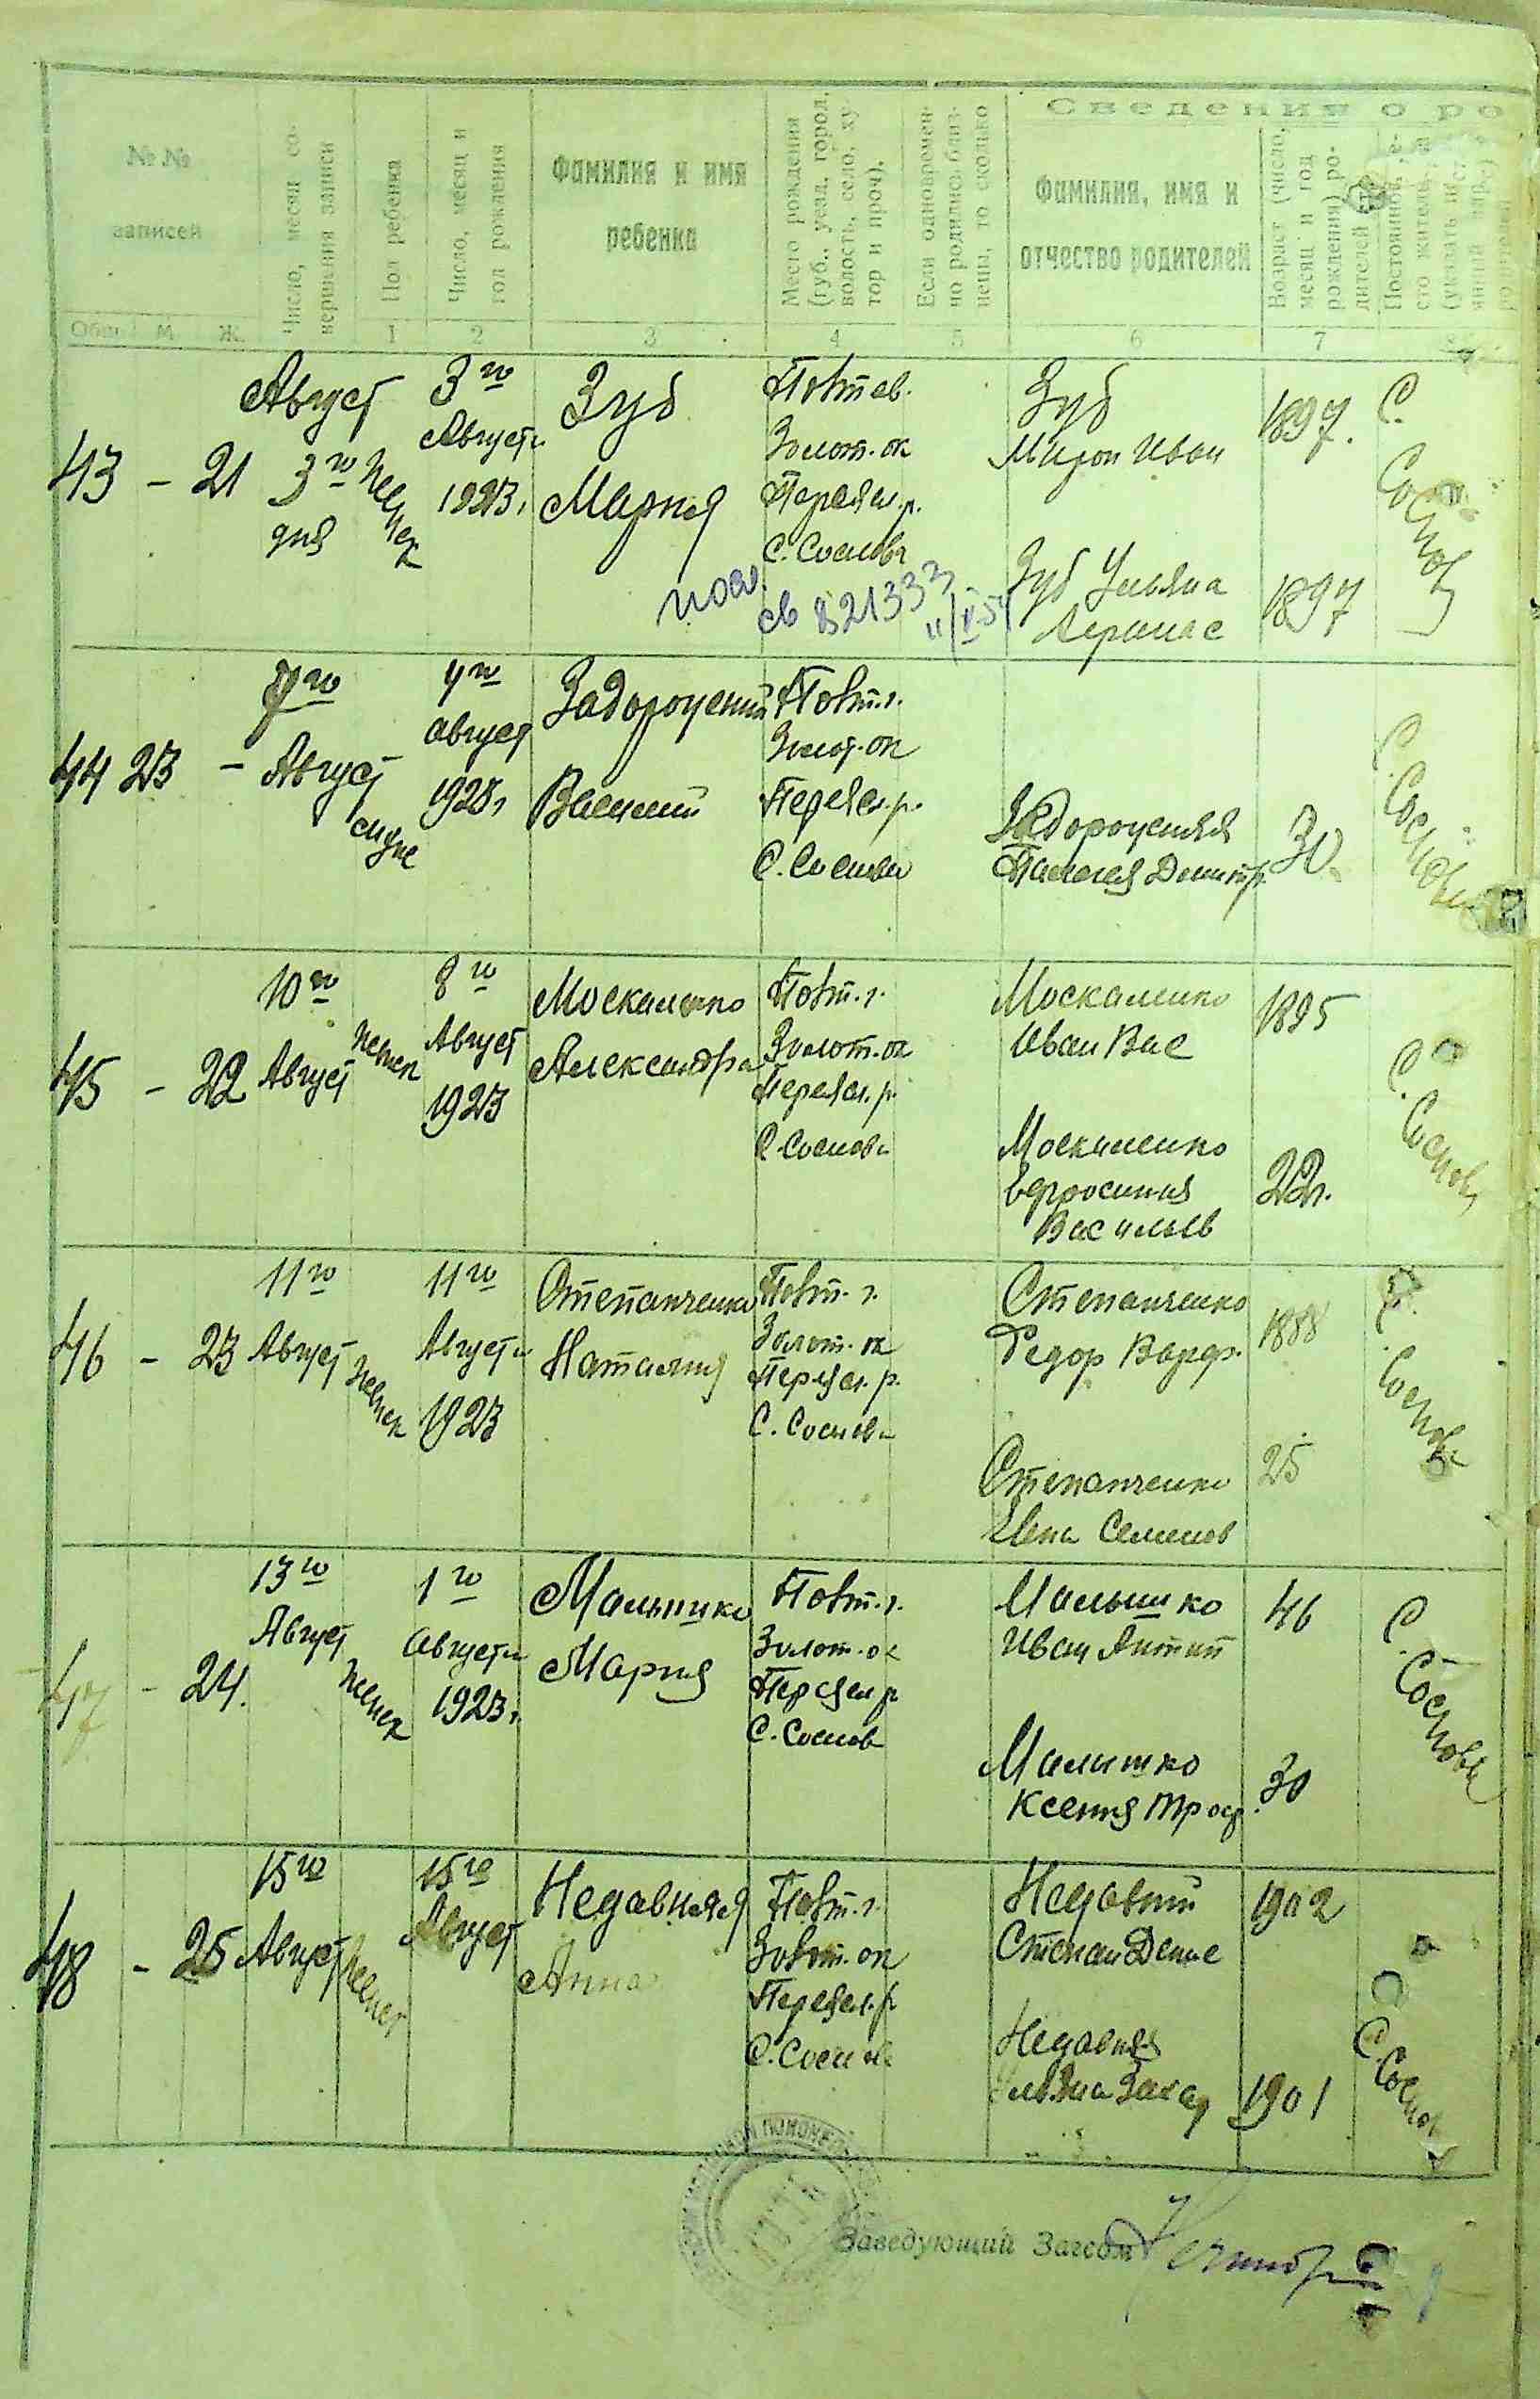 Сведения о ро
№ № записей
Число, месяц со-
вершения записи
Пол ребенка
Число, месяц и
год рождения
Фамилия и имя
ребенка
Место рождения
(губ., уезд, город,
волость, село, ху-
тор и проч).
Если одновремен-
но родились близ-
нецы, то сколько
Фамилия, имя и
отчество родителей
Возраст (число,
месяц и год
рождения) ро-
дителей
Общ. М. Ж. 1 2 3 4 5 6 7
43 - 21
Август
3го
дня
женск
3го
Августа
1923г
Зуб
Мария
Золот. ок
Переясл. р.
С. Соснова
св 821333
Зуб
Мирон Иван
1897.
Зуб Ульяна
1897
С.
Соснов
44 23 -
Август
4го
август
1923г
Задорожений
Василий
Полт. г.
Золот. ок
Переясл. р.
С. Соснова
Задорожняя
Пелагея Димитр.
30.
С. Соснова
45 - 22
10го
Август
женск
8го
Август
1923
Москаленко
Александра
Полт. г.
Золот. ок
Переясл. р.
С. Соснова
Москаленко
Иван Вас
1895
Москаленко
Ефросиния
Васильев
22г.
С. Соснов
46 - 23
11го
Август
женск
11го
Августа
1923
Степанченко
Наталия
Полт. г.
Золот. ок
Переясл. р.
С. Соснова
Степанченко
Федор Варф.
1888
Степанченко
Семенов
25
С. Соснова
47 - 24.
13го
Август
женск
1го
Августа
1923г
Малышко
Мария
Полт. г.
Золот. ок
Переясл р
С. Соснов
Малышко
Иван Антип
46
Малишко
Ксения Троф.
30
С. Соснова
48 - 25
15го
Август
женск
15го
Август
Недавняя
Анна
Полт. г.
Золот. ок
Переясл. р
С. Соснов
Недавний
Степан Денис
1902
Недавняя
Ульяна Захар
1901
С. Соснов
Заведующий Загсом